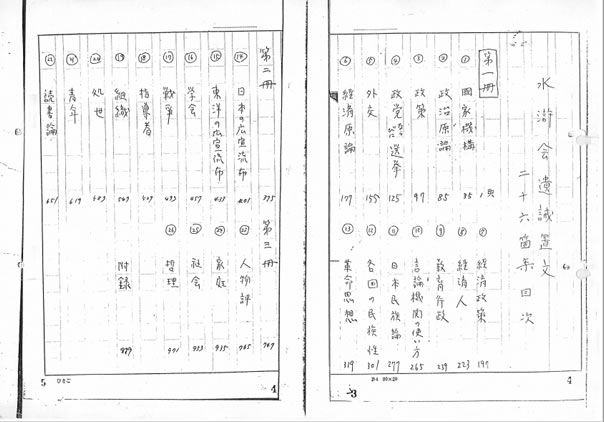 水滸会遺誡置文
二十六箇条目次
第一冊
① 国家機構 35
② 政治原論 85
③ 政策 97
④ 政党 選挙 125
⑤ 外交 155
⑥ 経済原論 177
⑦ 経済政策 197
⑧ 経済人 223
⑨ 教育行政 239
⑩ 言論機関の使い方 265
⑪ 日本民族論 277
⑫ 各国の民族性 301
⑬ 革命思想 319
4
B4 20×20
3
第二冊 395
⑭ 日本の広宣流布 401
⑮ 東洋の広宣流布 433
⑯ 学会 457
⑰ 戦争 493
⑱ 指導者 509
⑲ 組織 569
⑳ 処世 603
㉑ 青年 619
㉒ 読書論 651
第三冊 769
㉓ 人物評 765
㉔ 家庭 935
㉕ 社会 953
㉖ 哲理 971
附録 999
4
5